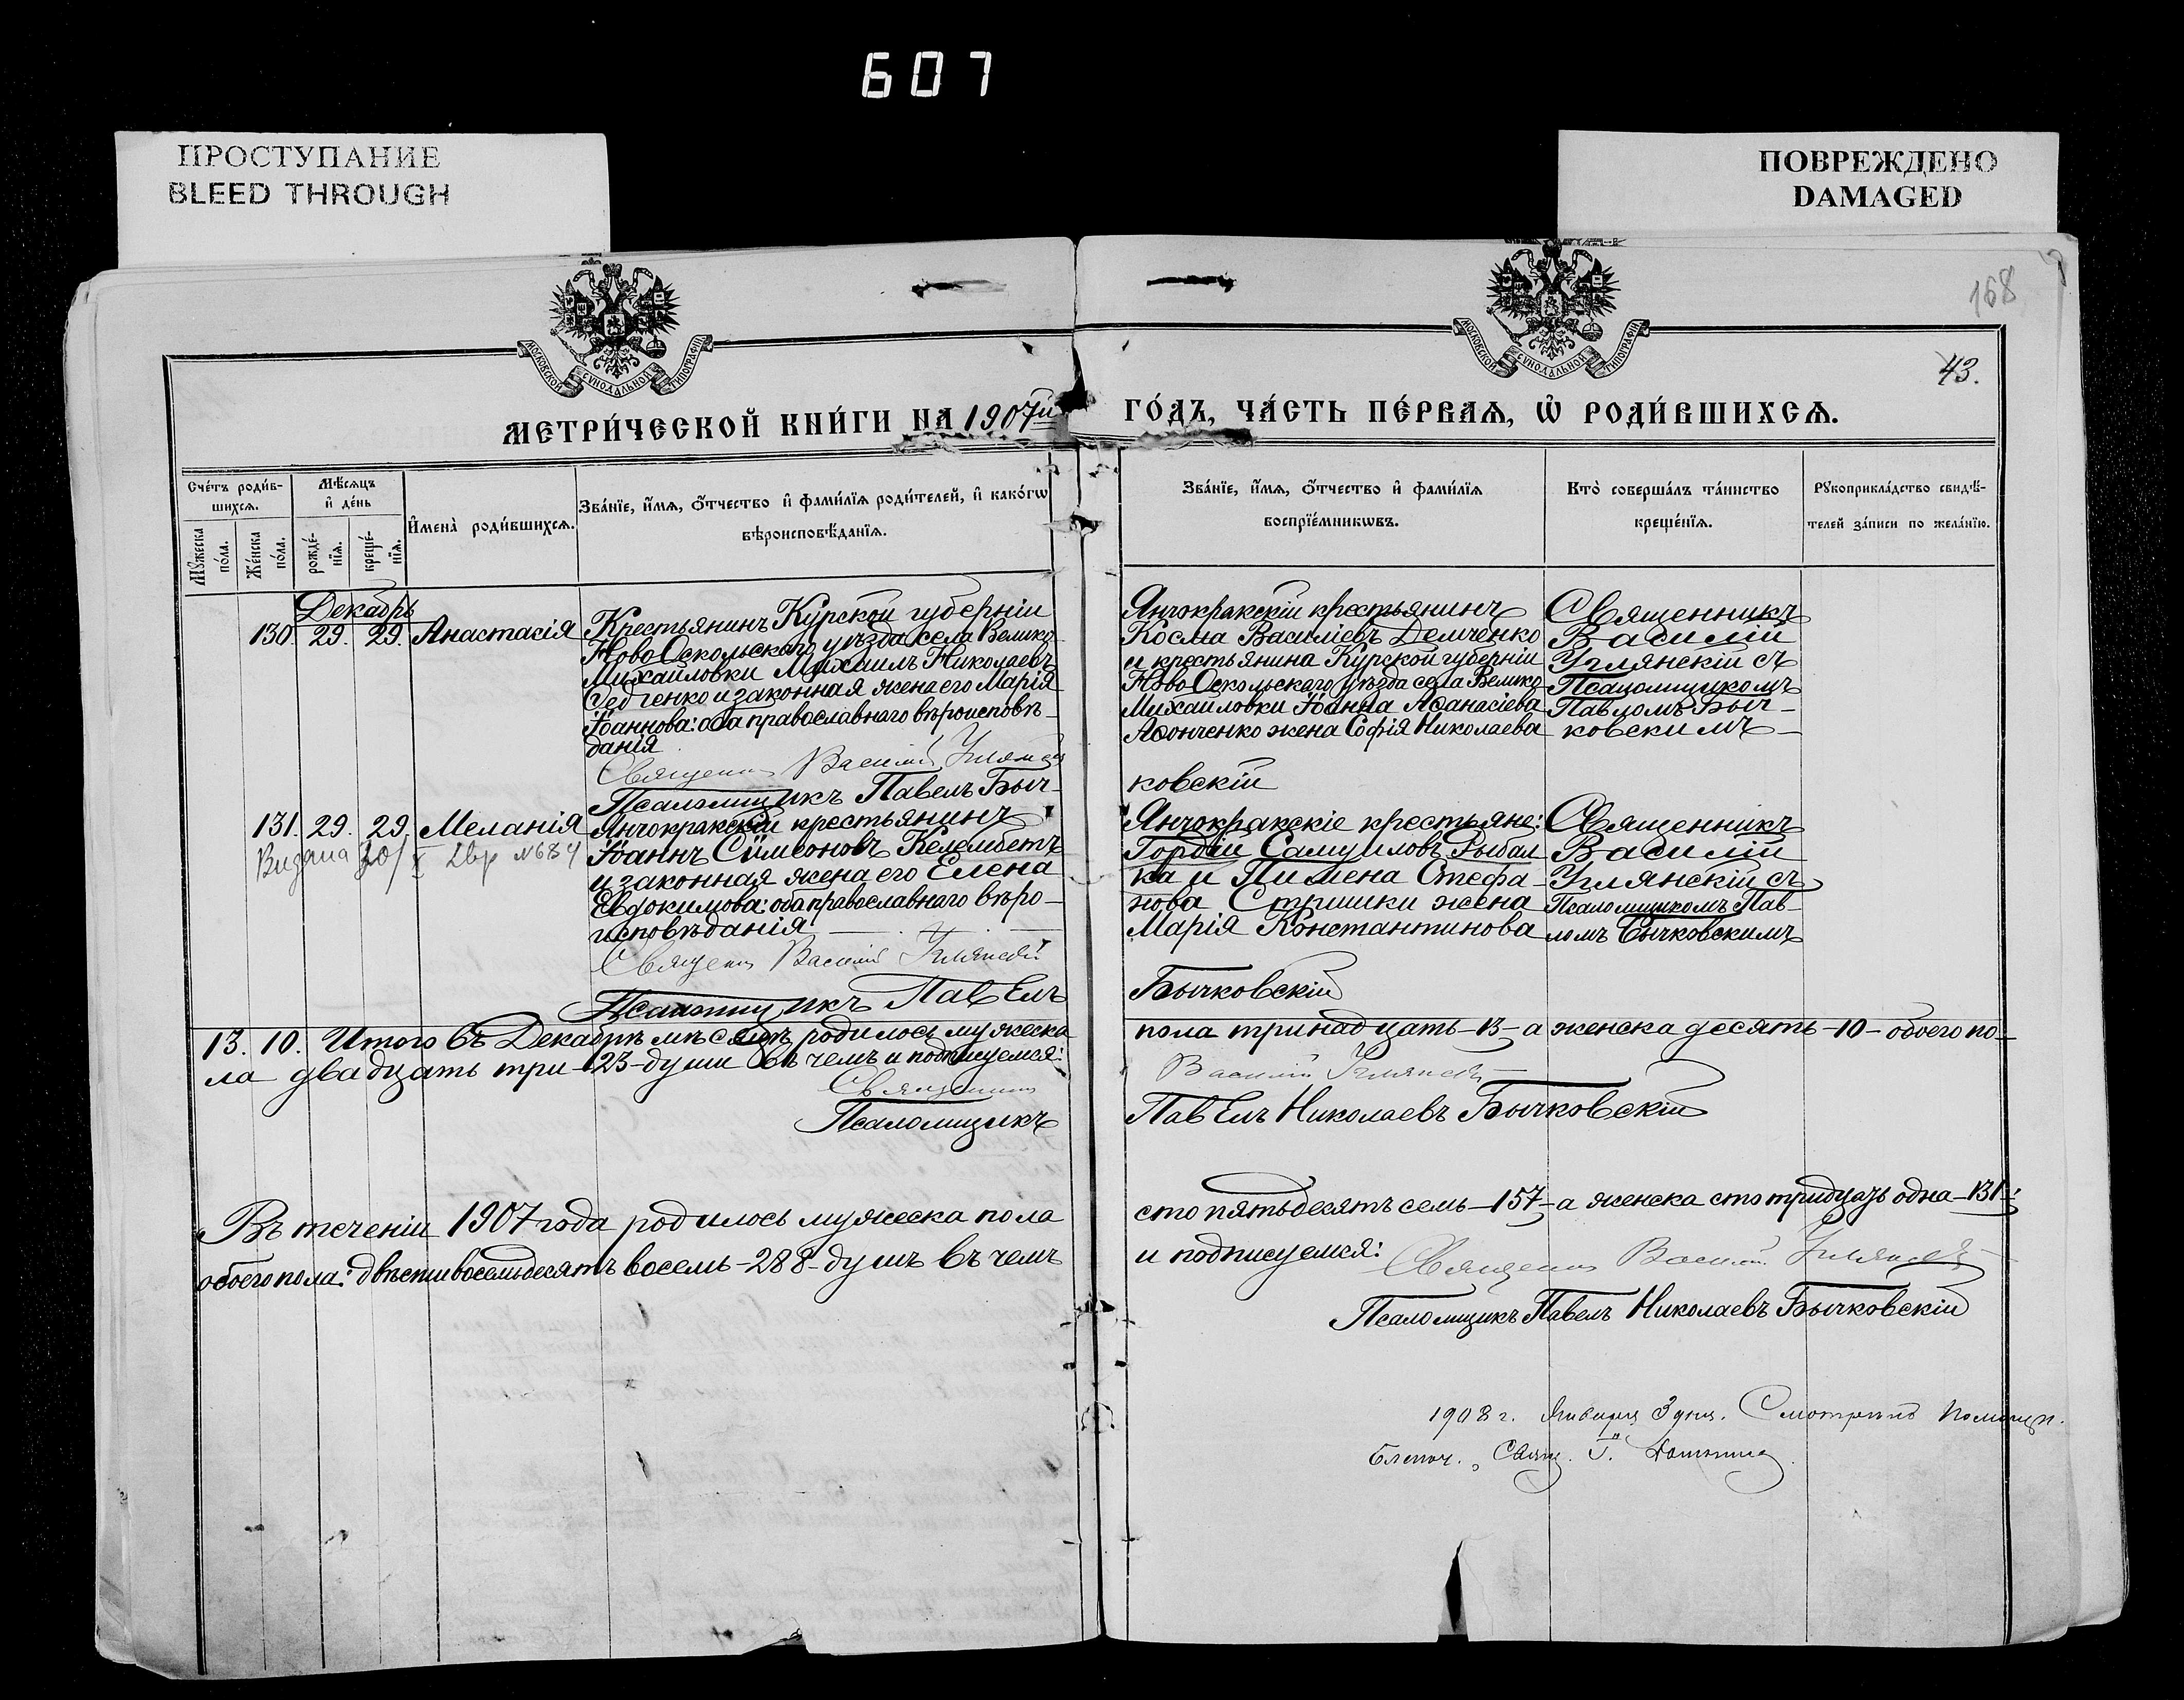 607
ПРОСТУПАНИЕ
BLEED THROUGH
ПОВРЕЖДЕНО
DAMAGED
168
МОСКОВСКОЙ СѴНОДАЛЬНОЙ ТИПОГРАФІИ
МОСКОВСКОЙ СѴНОДАЛЬНОЙ ТИПОГРАФІИ
43.
МЕТРИ́ЧЕСКОЙ КНИ́ГИ НА 1907й
ГО́ДЪ, ЧА́СТЬ ПЕ́РВАѦ, Ѡ҆ РОДИ́ВШИХСѦ.
Сче́тъ роди́в-
шихсѧ.
Мꙋ́жеска по́ла.
Же́нска по́ла.
Мѣ́сѧцъ
и҆ де́нь
рожде́-
нїѧ.
креще́-
нїѧ.
И҆мена̀ роди́вшихсѧ.
Зва́нїе, и҆́мѧ, ѻ҆́тчество и҆ фами́лїѧ роди́телей, и҆ како́гѡ
вѣроисповѣ́данїѧ.
Зва́нїе, и҆́мѧ, ѻ҆́тчество и҆ фами́лїѧ
воспрїе́мникѡвъ.
Кто̀ соверша́лъ та́инство
креще́нїѧ.
Рꙋкоприкла́дство свидѣ́-
телей за́писи по жела́нїю.
Декабрь
130. 29. 29. Анастасія
Крестьянинъ Курской губерніи
Ново-Оскольскаго уѣзда села Велико-
Михайловки Михаилъ Николаевъ
Седченко и законная жена его Марія
Іоаннова: оба православнаго вѣроисповѣ-
данія
Священник Василий Углянский
Псаломщикъ Павелъ Быч-
Янчокракскій крестьянинъ
Косма Василіевъ Демченко
и крестьянина Курской губерніи
Ново-Оскольскаго уѣзда села Велико-
Михайловки Іоанна Аѳанасіева
Аѳонченко жена Софія Николаева
ковскій
Священникъ
Василій
Углянскій съ
Псаломщикомъ
Павломъ Быч-
ковскимъ
131. 29. 29. Меланія
Видана 20/X Двр №684
Янчокракскій крестьянинъ
Іоаннъ Сѵмеоновъ Келембетъ
и законная жена его Елена
Евдокимова: оба православнаго вѣро-
исповѣданія
Священник Василий Углянский
Псаломщикъ Павелъ
Янчокракскіе крестьяне:
Гордій Самуиловъ Рыбал
ка и Пимена Стефа-
нова Стришки жена
Марія Константинова
Бычковскій
Священникъ
Василій
Углянскій съ
Псаломщикомъ Пав-
ломъ Бычковскимъ
13. 10. Итого въ Декабрѣ мѣсяцѣ родилось мужеска
пола тринадцать-13-а женска десять-10-обоего по-
ла двадцать три-23-души въ чемъ и подписуемся:
Священник
Василий Углянский
Псаломщикъ
Павелъ Николаевъ Бычковскій
Въ теченіи 1907 года родилось мужеска пола
сто пятьдесятъ семь-157-а женска сто тридцать одна-131:
обоего пола: двѣсти восемьдесятъ восемь-288-душъ въ чемъ
и подписуемся: Священник Василий Углянский
Псаломщикъ Павелъ Николаевъ Бычковскій
1908 г. Января 3 дня. Смотрѣлъ помощн.
Благоч. Свящ.